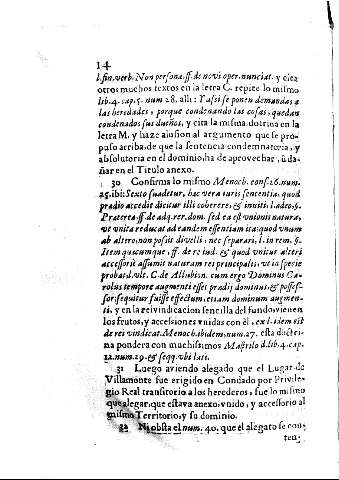 14
l.fin.verb. Non persona, ff. de novi oper. nunciat. y cita
otros muchos textos en la letra C. repite lo mismo
lib. 4. cap. 5. num 28. alli: Y assi se ponen demandas a
las heredades, porque condenando las cosas, quedan
condenados sus dueños, y cita la misma doctrina en la
letra M. y haze alusion al argumento que se pro-
puso arriba, de que la sentencia condemnatoria, y
absolutoria en el dominio, ha de aprovechar, ù da-
ñar en el Titulo anexo.
30 Confirma lo mismo Menoch. cons. 26. num.
25. ibi: Sexto suadetur, hac vera iuris sententia. quod
prædio accedit dicitur illi coherere, & inniti. l. adeo. §.
Præterea. ff. de adq. rer. dom. sed ea est vnionis natura,
vt vnita reducat ad eandem essentiam ita: quod vnum
ab altero, non possit divelli, nec separari, l. in rem. §.
Item quæcumque, ff. de rei ind. & quod vnitur alteri
accessoriè assumit naturam rei principalis, vt in specie
probat d. vlt. C. de Alluvion. cum ergo Dominus Ca-
rolus tempore augmenti esset prædij dominus, & posses-
sor; sequitur fuisse effectum, etiam dominum augmen-
ti. y en la reivindicacion sencilla del fundo, vienen
los frutos, y accessiones vnidas con èl, ex l. idem est
de rei vindicat. Menoch. ibidem, num. 27. esta doctri-
na pondera con muchisimos Mastrilo d. lib. 4. cap.
12. num. 29. & seqq. vbi latè.
31 Luego aviendo alegado que el Lugar de
Villamonte fue erigido en Condado por Privile-
gio Real transitorio a los herederos, fue lo mismo
que alegar, que estava anexo, vnido, y accessorio al
mismo Territorio, y su dominio.
32 Ni obsta el num. 40. que el alegato se con-
ten-